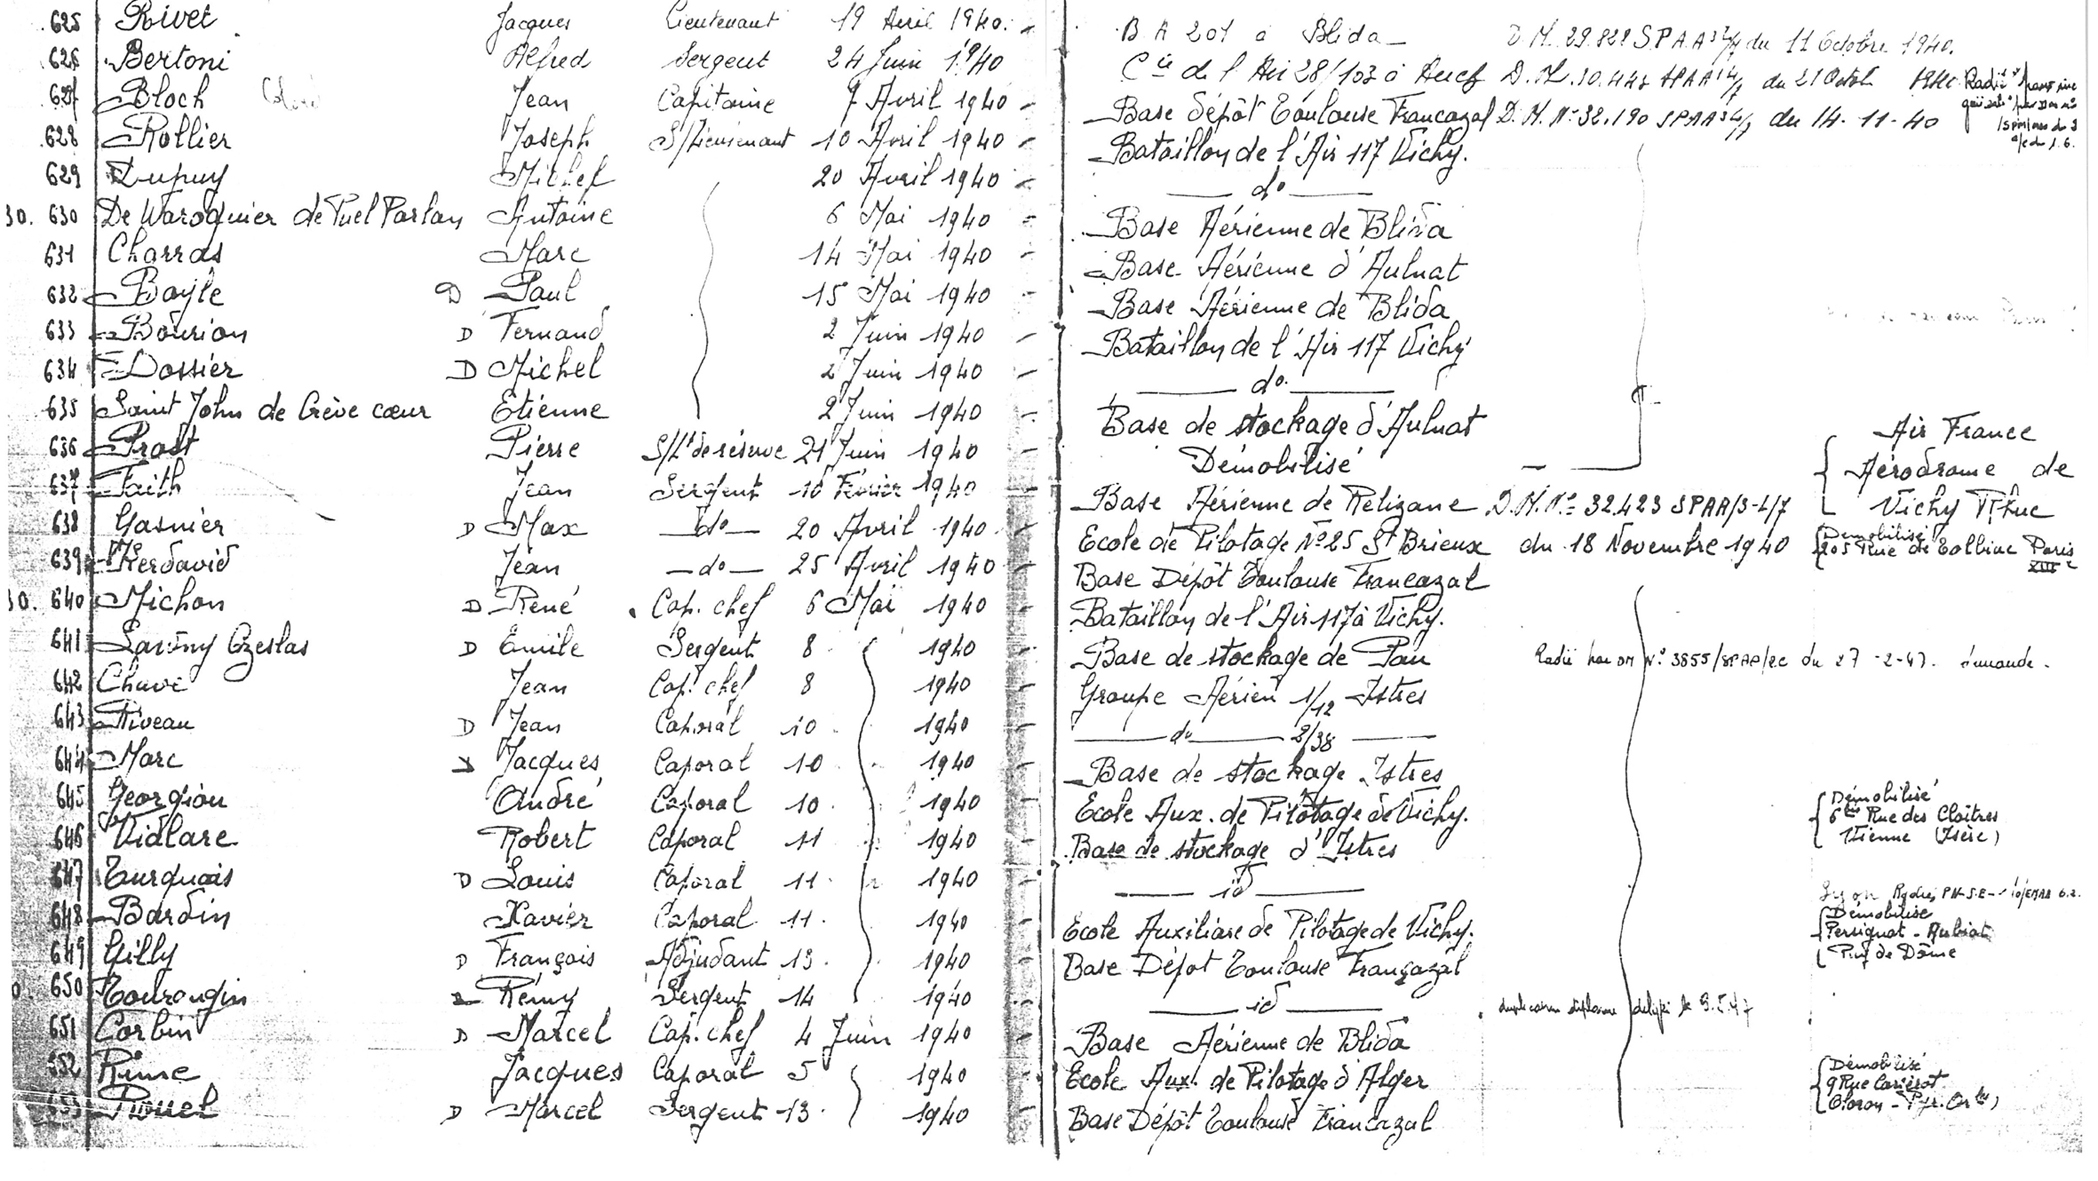 625 Rivet Jacques Lieutenant 19 Avril 1940. BA 201 à Blida D.M. 29.828 S.P.A.A 3 4/7 du 11 Octobre 1940.
626 Bertoni Alfred Sergent 24 Juin 1940 Cie de l'Air 28/103 à D.M. du 21 Octob 1940
627 Bloch Jean Capitaine 7 Avril 1940 Base dépôt Toulouse Francazal D.M. N° 32.190 SPAA 3 4/7 du 14-11-40
628 Rollier Joseph S/Lieutenant 10 Avril 1940 Bataillon de l'Air 117 Vichy.
629 Dupuy Michel 20 Avril 1940 do
30. 630 De Waroquier de Puel Parlan Antoine 6 Mai 1940 Base Aérienne de Blida
631 Charras Marc 14 Mai 1940 Base Aérienne d'Aulnat
632 Bayle D Paul 15 Mai 1940 Base Aérienne de Blida
633 Bourion D Fernand 2 Juin 1940 Bataillon de l'Air 117 Vichy
634 Dossier D Michel 2 Juin 1940 do
635 Saint John de Crève cœur Etienne 2 Juin 1940 Base de stockage d'Aulnat
636 Prost Pierre S/Lt de réserve 21 Juin 1940 Démobilisé Air France Aérodrome de Vichy Rhue
637 Faith Jean Sergent 10 Février 1940 Base Aérienne de Relizane D.M. N° 32.423 SPAA/3-4/7
638 Gasnier D Max do 20 Avril 1940 Ecole de Pilotage N° 25 St Brieux du 18 Novembre 1940 Démobilisé 205 Rue de Tolbiac Paris XIIIe
639 Kerdavid Jean do 25 Avril 1940 Base Dépôt Toulouse Francazal
640 Michon D René Cap. chef 6 Mai 1940 Bataillon de l'Air 117 à Vichy.
641 Czeslas D Emile Sergent 8 1940 Base de stockage de Pau Radié par DM N° 3855/SPAA/2C du 27-2-47. demande.
642 Chave Jean Cap. chef 8 1940 Groupe Aérien 1/12 Istres
643 Niveau D Jean Caporal 10 1940 do 2/38
644 Marc Jacques Caporal 10 1940 Base de stockage Istres
645 Georgiou André Caporal 10 1940 Ecole Aux. de Pilotage de Vichy. Démobilisé 6 Rue des Cloîtres Vienne (Isère)
646 Vidlare Robert Caporal 11 1940 Base de stockage d'Istres
647 Turquois D Louis Caporal 11 1940 id
648 Bardin Xavier Caporal 11 1940 Ecole Auxiliaire de Pilotage de Vichy. Démobilisé Persignat - Aubiat Puy de Dôme
649 Gilly D François Adjudant 13 1940 Base Dépot Toulouse Francazal
650 Tourangin Rémy Sergent 14 1940 id
651 Corbin D Marcel Cap. chef 4 Juin 1940 Base Aérienne de Blida
652 Rime Jacques Caporal 5 1940 Ecole Aux. de Pilotage d'Alger Démobilisé 9 Rue Oloron
653 D Marcel Sergent 13 1940 Base Dépôt Toulouse Francazal